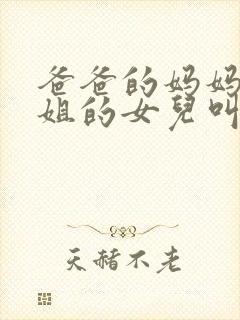 爸爸的妈妈
姐的女兒叫
天赭不老